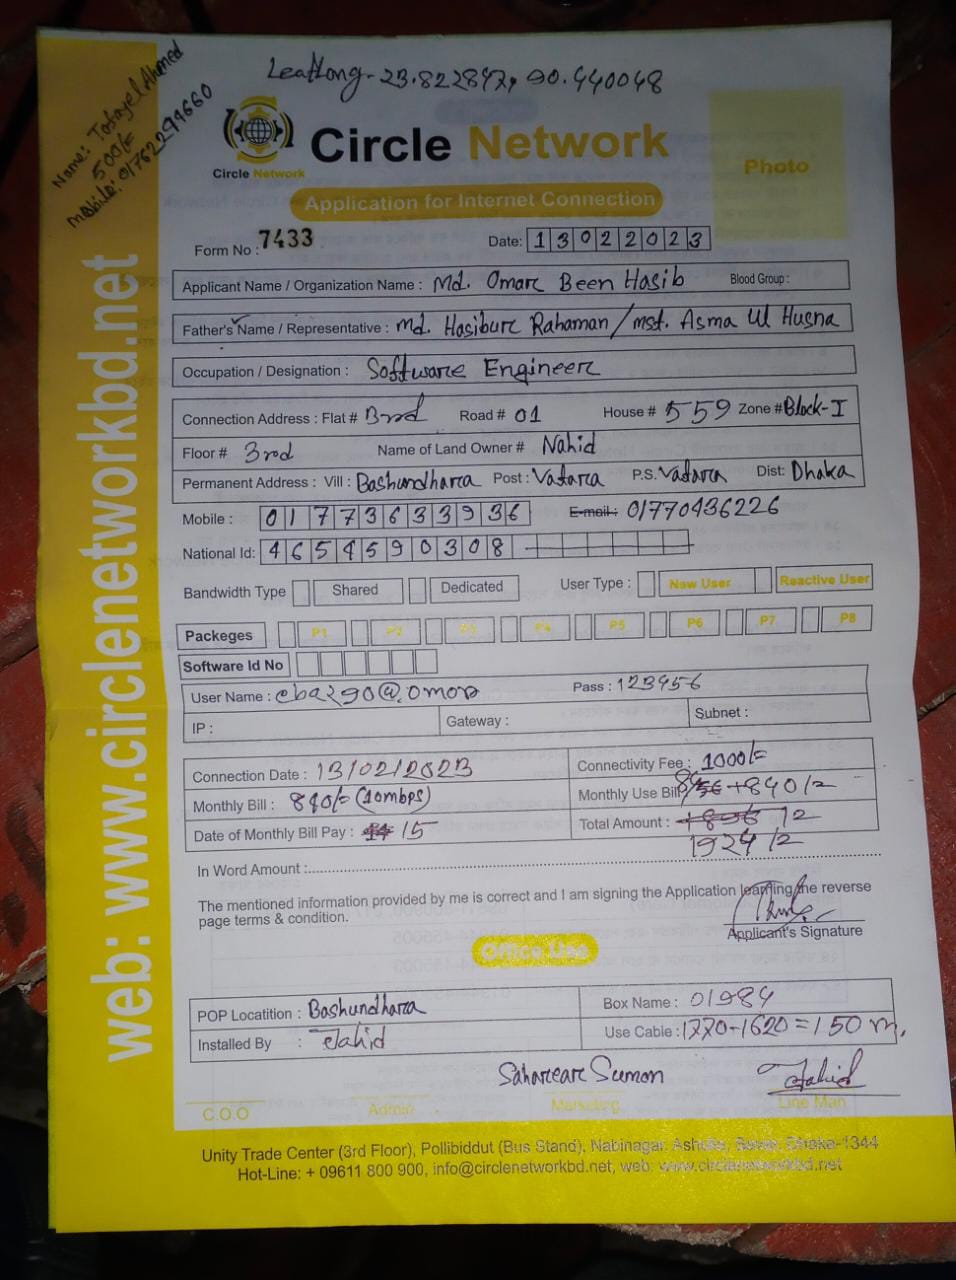 Name: Tofayel Ahmed
500/=
Mobile: 01762294660
LeatLong-23.822847, 90.440048
Circle Network
Circle Network
Photo
Application for Internet Connection
Form No : 7433
Date: 13022023
Applicant Name / Organization Name : Md. Omar Been Hasib Blood Group :
Father's Name / Representative : Md. Hasibur Rahaman / mst. Asma Ul Husna
Occupation / Designation : Software Engineer
Connection Address : Flat # 3rd Road # 01 House # 559 Zone # Block-I
Floor # 3rd Name of Land Owner # Nahid
Permanent Address : Vill : Bashundhara Post : Vatara P.S. Vatara Dist: Dhaka
Mobile : 01773633936 E-mail : 01770436226
National Id: 4654590308
Bandwidth Type Shared Dedicated User Type : New User Reactive User
Packeges P1 P2 P3 P4 P5 P6 P7 P8
Software Id No
User Name : cba290@omor Pass : 123456
IP : Gateway : Subnet :
Connection Date : 13/02/2023 Connectivity Fee : 1000/=
Monthly Bill : 840/= (10mbps) Monthly Use Bill +840/=
Date of Monthly Bill Pay : 15 Total Amount :
1924/=
In Word Amount :
The mentioned information provided by me is correct and I am signing the Application learning the reverse
page terms & condition.
Applicant's Signature
Office Use
POP Locatition : Bashundhara Box Name : 01984
Installed By : Jahid Use Cable : 1770-1620=150 m.
Saharear Sumon Jahid
C.O.O Admin Marketing Line Man
Unity Trade Center (3rd Floor), Pollibiddut (Bus Stand), Nabinagar, Ashulia, Savar, Dhaka-1344
Hot-Line: + 09611 800 900, info@circlenetworkbd.net, web: www.circlenetworkbd.net
web: www.circlenetworkbd.net